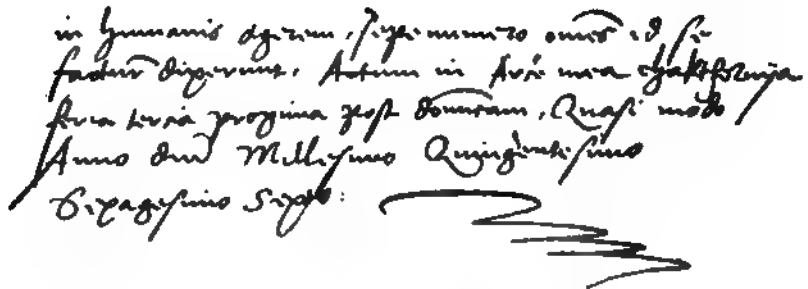 in humanis agerem, septe numero om̄es id se
factur̄ dixerunt. Actum in Arce mea Chaktornya
feria tercia proxima post domīcam, Quasi modo
Anno dnī Millesimo Quingentesimo
Sexagesimo Sexto: